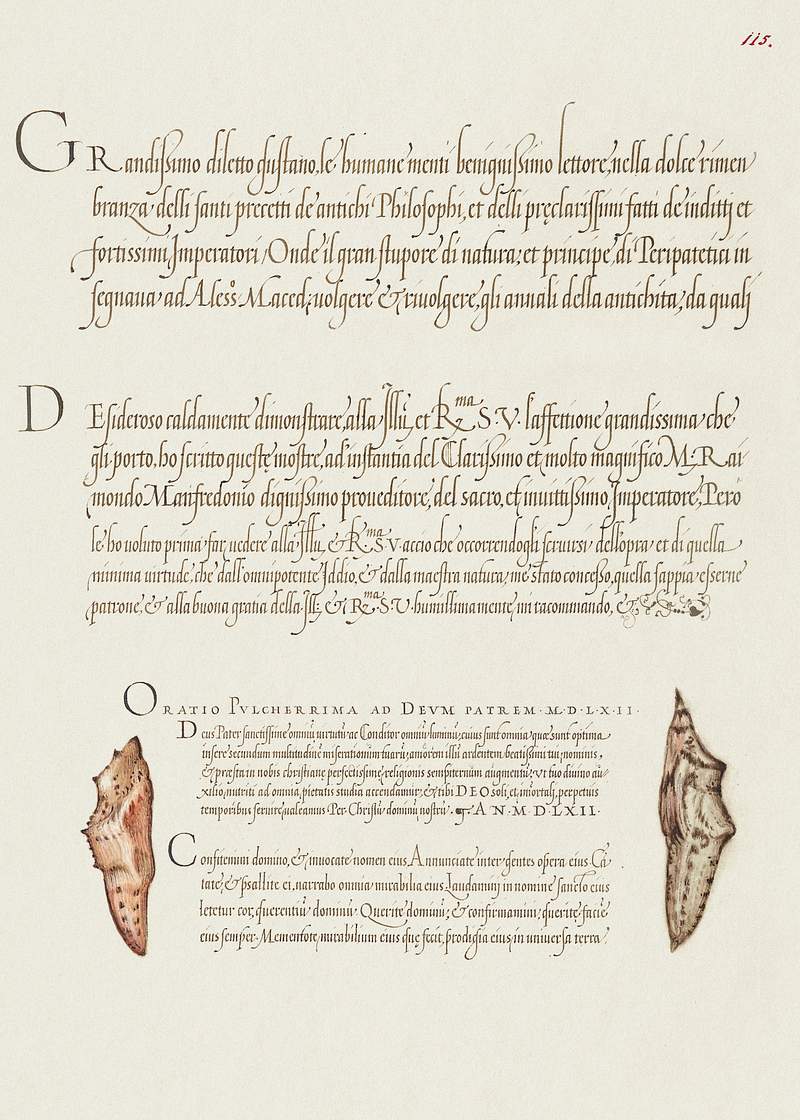 115.
GRandissimo diletto gustano, le humane menti benignissimo lettore, nella dolce rimen
branza delli santi precetti de antichi Philosophi, et delli pręclarissimi fatti de inditti et
fortissimi Imperatori, Onde il gran stupore di natura, et principe, di Peripatetici in
segnaua ad Aless.º Maced., uolgere & riuolgere, gli annali della antichita, da quali
DEsideroso caldamente dimonstrare, alla Illu, et Rma S. V. l'affettione grandissima che
gli porto, ho scritto queste mostre, ad instantia del Clarissimo et molto magnifico M. Rai
mondo Manfredonio dignissimo proueditore, del sacro, et inuittissimo, Imperatore, Però
le ho uoluto prima far, uedere alla Illu, & Rma S. V. accio che occorrendogli seruirsi dell'opra et di quella
minima uirtude, che dall'omnipotente Iddio, & dalla maestra natura, me stato concesso, quella sappia esserne
patrone, & alla buona gratia della Ill: & Rma S. V. humillimamente, mi racommando, &
ORATIO PVLCHERRIMA AD DEVM PATREM. M. D. L. X. II.
Deus Pater sanctissime omniū uirtutū ac Conditor omniū luminū, cuius sunt omnia quæ sunt optima
insere secundum multitudinē miserationum tuarū, amorem illū ardentem beatissimi tui nominis,
& præsta in nobis christianę perfectissimę religionis sempiternum augmentū, Vt tuo diuino au-
xilio, nutriti ad omnia, pietatis studia accendamur, & tibi DEO soli, et, imortalj, perpetuis
temporibus seruire, ualeamus Per Christū dominū nostrū. AN. M. D. LXII.
Confitemini domino, & inuocate nomen eius Annunciate inter gentes opera eius Cā
tate, & psallite ei, narrabo omnia mirabilia eius Laudamini in nomine sancto eius
letetur cor, querentiū dominū. Querite dominū, & confirmamini, querite, faciē
eius semper. Mementote, mirabilium eius quę fecit, prodigia eius, in uniuersa terra